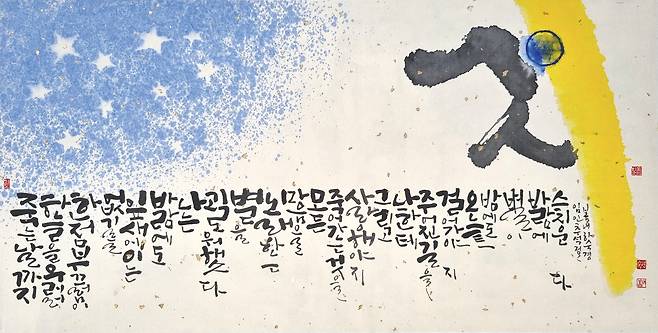 죽는날까지
하늘을우러러
한점부끄럼이
없기를
잎새에이는
바람에도
나는
괴로워했다
별을
노래하는
마음으로
모든
죽어가는것을
사랑해야지
그리고
나한테
주어진길을
걸어가야지
오늘
밤에도
별이
바람에
스치운다